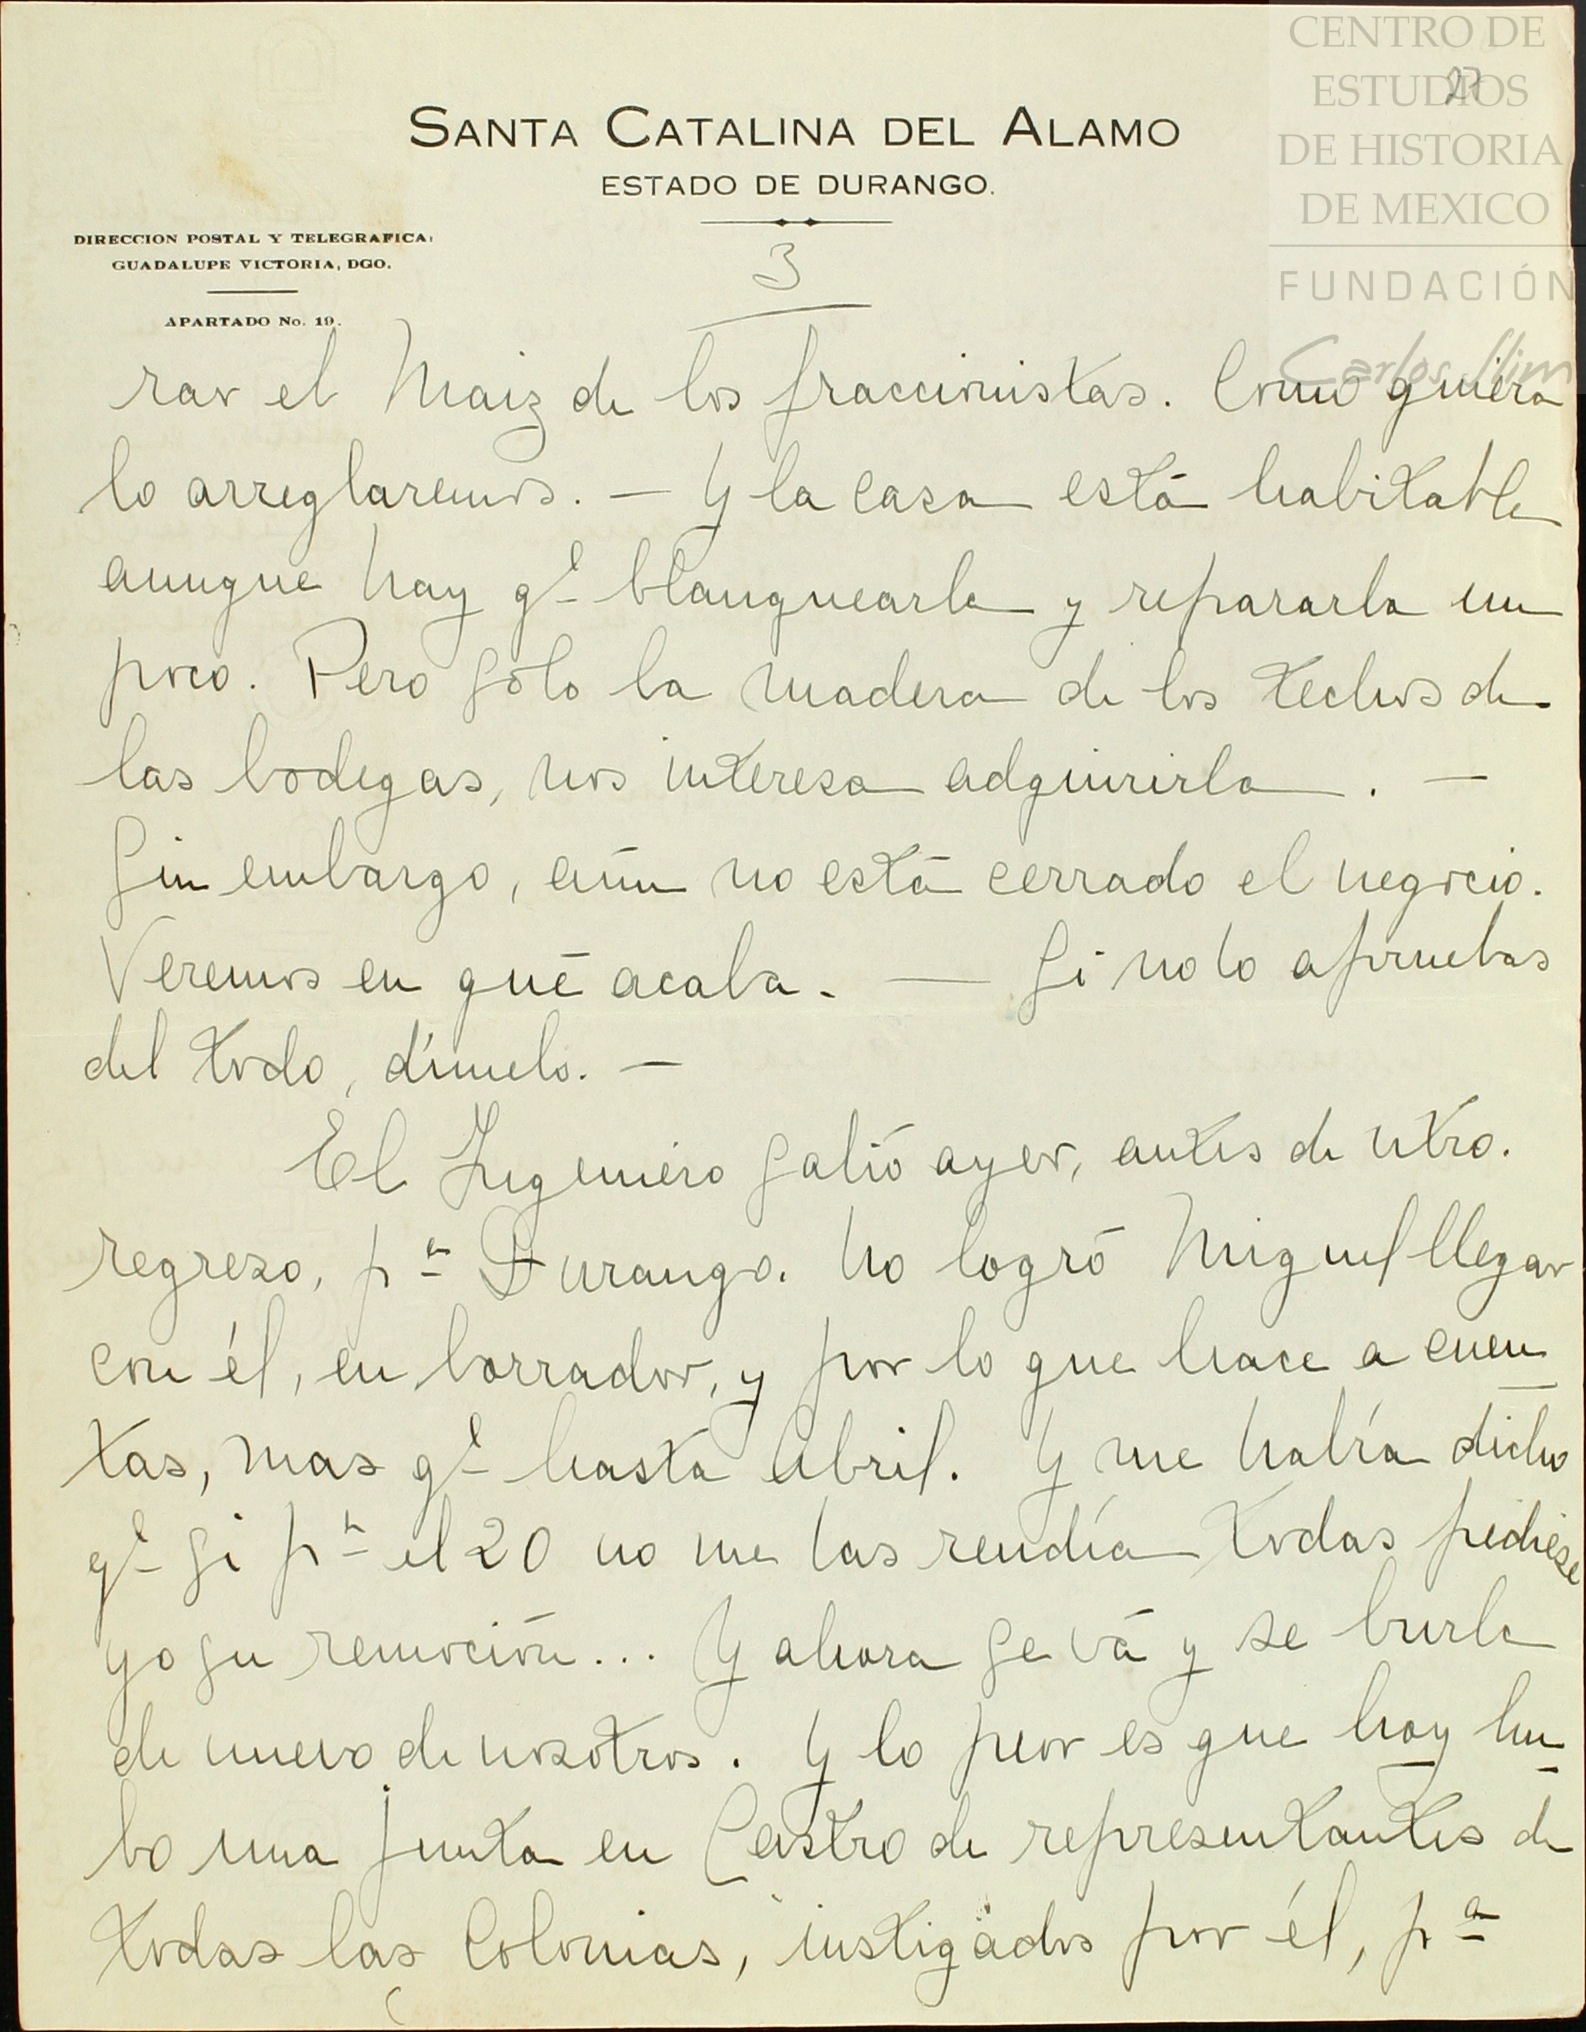 CENTRO DE
ESTUDIOS
DE HISTORIA
DE MEXICO
FUNDACIÓN
Carlos Slim
27
SANTA CATALINA DEL ALAMO
ESTADO DE DURANGO.
DIRECCION POSTAL Y TELEGRAFICA:
GUADALUPE VICTORIA, DGO.
APARTADO No. 19.
3
rar el Maiz de los fraccionistas. Como quiera
lo arreglaremos. — Y la casa está habitable
aunque hay qe blanquearla y repararla un
poco. Pero sólo la madera de los techos de
las bodegas, nos interesa adquirirla. —
Sin embargo, aún no está cerrado el negocio.
Veremos en qué acaba. — Si no lo apruebas
del todo, dímelo. —
El Ingeniero salió ayer, antes de ntro.
regreso, pa Durango. No logró Miguel llegar
con él, en borrador, y por lo que hace a cuen
tas, mas qe hasta Abril. Y me había dicho
qe si pa el 20 no me las rendía todas pidiese
yo su remoción... Y ahora se vá y se burla
de nuevo de nosotros. Y lo peor es que hoy hu
bo una junta en Castro de representantes de
todas las Colonias, instigados por él, pa